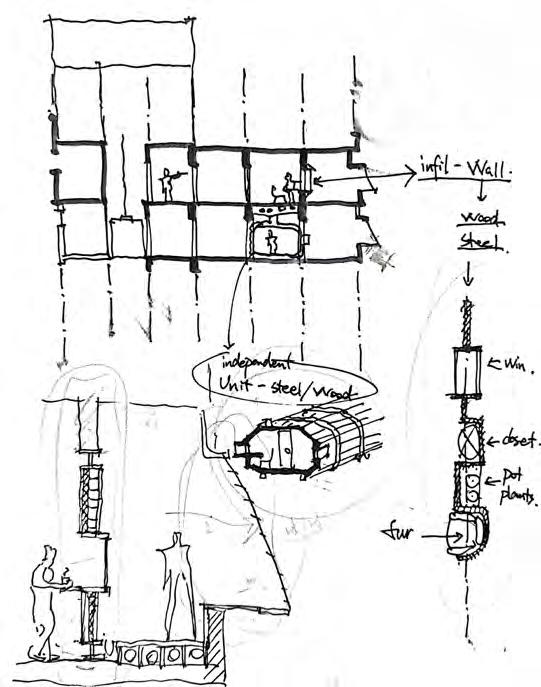 infil-Wall.
wood
steel
independent
Unit-steel/wood
win.
closet.
pot
plants.
fur